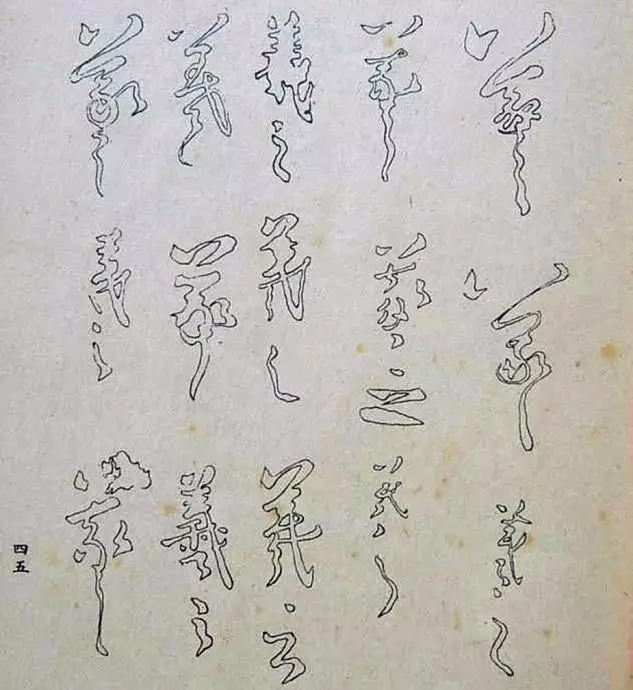 羲之 羲之 羲之
羲之 羲之 羲之
羲之 羲之 羲之
羲之 羲之 羲之
羲之 羲之 羲之
四五